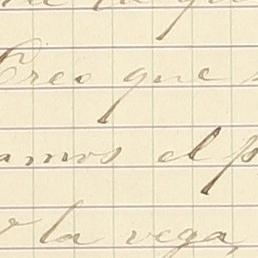 la
Creo que
amos el p
la vega,